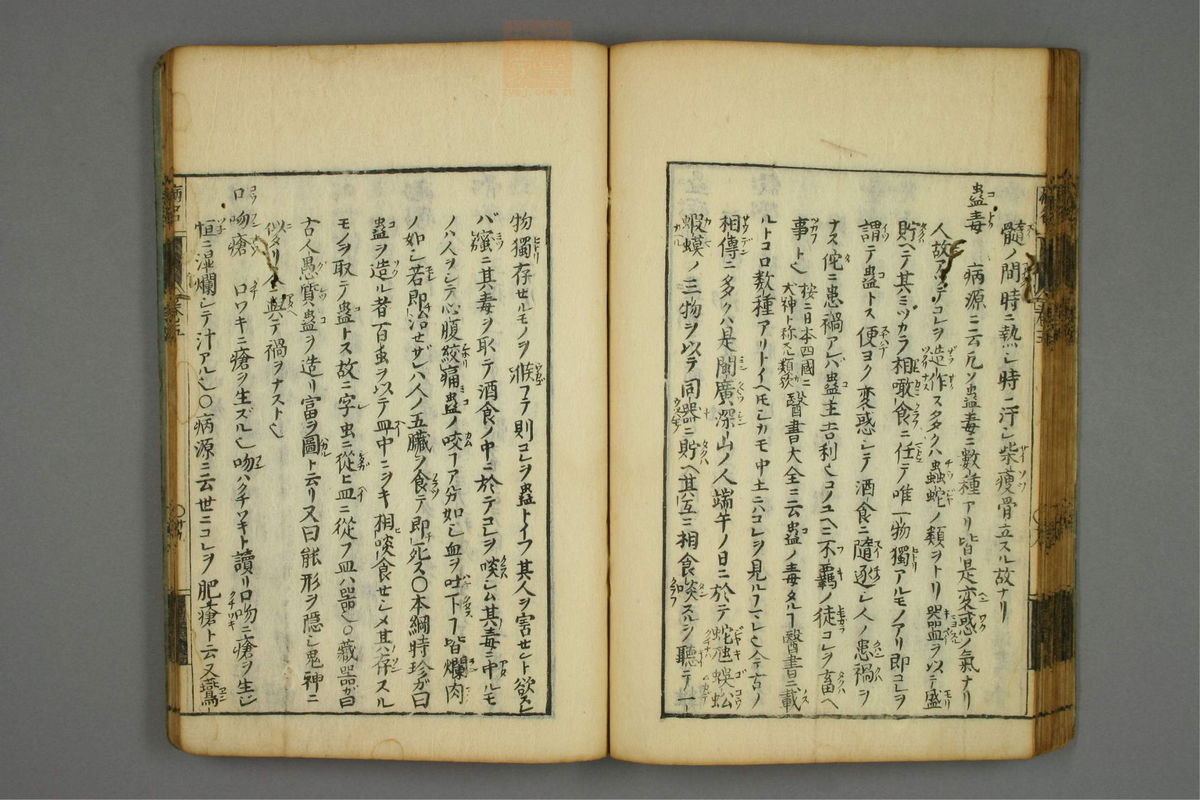 髓ノ間時ニ熱シ時ニ汗シ柴瘦骨立スル故ナリ
蠱毒 病源ニ云凡ソ蠱毒ニ數種アリ皆是変惑ノ氣ナリ
人故アテコレヲ造作スタクハ蟲蛇ノ類ヲトリ器皿ヲ以テ盛
貯ヘテ其ミツカラ相噉食ニ任テ唯一物獨アルモノアリ即コレヲ
謂テ蠱トス便ヨク変惑シテ酒食ニ隨逐シ人ノ患禍ヲ
ナス佗ニ患禍アレバ蠱主吉利也コノユヘニ不羈ノ徒コレヲ畜ヘ
事ト也 按ニ日本四國ニ犬神ト称スル類歟 醫書大全ニ云蠱ノ毒タルヿ醫書ニ載
ルトコロ数種アリトイヘモシカモ中土ニハコレヲ見ルヿマレ也今古ノ
相傳ニ多クハ是閩廣深山ノ人端午ノ日ニ於テ蛇虺蜈蚣
蝦蟆ノ三物ヲ以テ同器ニ貯ヘ其互ニ相食啖スルヲ聽テ一
物獨存セルモノヲ候フテ則コレヲ蠱トイフ其人ヲ害セント欲スレ
バ窃ニ其毒ヲ取テ酒食ノ中ニ於テコレヲ啖シム其毒ニ中ルモ
ノハ人ヲシテ心腹絞痛蟲ノ咬ヿアル如シ血ヲ吐下ヿ皆爛肉
ノ如シ若即治セザレハ人ノ五臓ヲ食テ即死ス〇本綱時珍ガ曰
蠱ヲ造ル者百虫ヲ以テ皿中ニヲキ相啖食セシメ其存スル
モノヲ取テ蠱トス故ニ字虫ニ從ヒ皿ニ從フ皿ハ器也〇藏器ガ曰
古人愚質蠱ヲ造リ富ヲ圖ト云リ又曰能形ヲ隠シ鬼神ニ
似タリ人與ニ禍ヲナスト也
口吻瘡 口ワキニ瘡ヲ生ズル也吻ハクチワキト讀リ口吻ニ瘡ヲ生シ
恒ニ湿爛シテ汁アル也〇病源ニ云世ニコレヲ肥瘡ト云又鷰